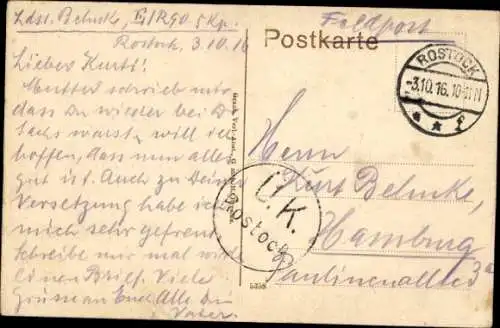 Ldst. Behnke, E/IR90 5 Kp.
Rostock, 3.10.16
Lieber Kurt!
Mutter schrieb mir,
dass Du wieder bei Dr
Sachs warst, will ich
hoffen, dass nun alles
gut ist. Auch zu Deiner
Versetzung habe ich
mich sehr gefreut
Schreibe mir mal wieder
einen Brief. Viele
Grüsse an Euch Alle Dein
Vater.
Feldpost
Postkarte
ROSTOCK
-3.10.16. 10-11 N
* * f
Herrn
Kurt Behnke,
Hamburg
Paulinenallee 3a
U.K.
Rostock